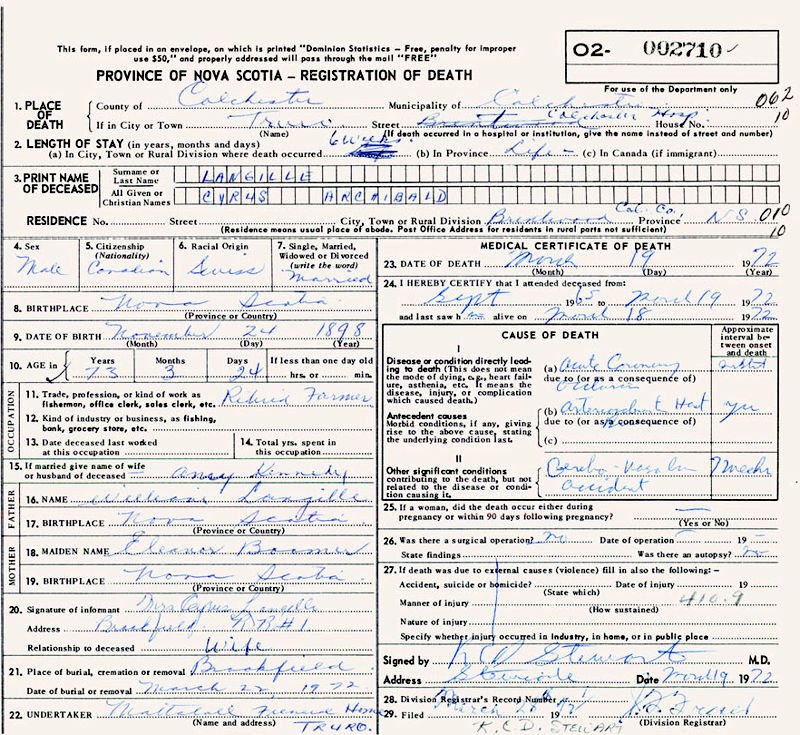 This form, if placed in an envelope, on which is printed "Dominion Statistics – Free, penalty for improper
use $50," and properly addressed will pass through the mail "FREE"
O2- 002710
PROVINCE OF NOVA SCOTIA – REGISTRATION OF DEATH
For use of the Department only
1. PLACE OF DEATH
County of Colchester Municipality of Colchester 062
If in City or Town Truro Street Colchester Hosp. House No. 10
(Name) (If death occurred in a hospital or institution, give the name instead of street and number)
2. LENGTH OF STAY (in years, months and days) 6 weeks
(a) In City, Town or Rural Division where death occurred (b) In Province Life – (c) In Canada (if immigrant)
3. PRINT NAME OF DECEASED
Surname or Last Name LANGILLE
All Given or Christian Names CYRUS ARCHIBALD
RESIDENCE No. Street City, Town or Rural Division Col. Co. Province NS 010
(Residence means usual place of abode. Post Office Address for residents in rural parts not sufficient) 10
4. Sex Male
5. Citizenship (Nationality) Canadian
6. Racial Origin Swiss
7. Single, Married, Widowed or Divorced (write the word) Married
8. BIRTHPLACE Nova Scotia
(Province or Country)
9. DATE OF BIRTH November 24 1898
(Month) (Day) (Year)
10. AGE in Years Months Days If less than one day old
73 3 24 hrs. or min.
OCCUPATION
11. Trade, profession, or kind of work as fishermon, office clerk, sales clerk, etc. Retired Farmer
12. Kind of industry or business, as fishing, bank, grocery store, etc.
13. Date deceased last worked at this occupation
14. Total yrs. spent in this occupation
15. If married give name of wife or husband of deceased Kennedy
FATHER
16. NAME William Langille
17. BIRTHPLACE Nova Scotia
(Province or Country)
MOTHER
18. MAIDEN NAME Eleanor Boomer
19. BIRTHPLACE Nova Scotia
(Province or Country)
20. Signature of informant Mrs Cyrus Langille
Address Brookfield RR#1
Relationship to deceased Wife
21. Place of burial, cremation or removal Brookfield
Date of burial or removal March 22, 1972
22. UNDERTAKER Mattatall Funeral Home
(Name and address) TRURO.
MEDICAL CERTIFICATE OF DEATH
23. DATE OF DEATH March 19 1972
(Month) (Day) (Year)
24. I HEREBY CERTIFY that I attended deceased from:
Sept 1965 to March 19 1972
and last saw him alive on March 18 1972
CAUSE OF DEATH
Approximate interval between onset and death
I
Disease or condition directly leading to death (This does not mean the mode of dying, e.g., heart failure, asthenia, etc. It means the disease, injury, or complication which caused death.)
(a) Acute Coronary
due to (or as a consequence of)
Antecedent causes
Morbid conditions, if any, giving rise to the above cause, stating the underlying condition last.
(b) Heart
due to (or as a consequence of)
(c)
II
Other significant conditions contributing to the death, but not related to the disease or condition causing it.
Cerebro-Vascular Accident 7 weeks
25. If a woman, did the death occur either during pregnancy or within 90 days following pregnancy?
(Yes or No)
26. Was there a surgical operation? no Date of operation 19
State findings Was there an autopsy? no
27. If death was due to external causes (violence) fill in also the following: –
Accident, suicide or homicide? Date of injury 19
(State which)
Manner of injury 410.9
(How sustained)
Nature of injury
Specify whether injury occurred in industry, in home, or in public place
Signed by Stewart M.D.
Address Date March 19 1972
28. Division Registrar's Record Number
29. Filed March
K.C.D. STEWART (Division Registrar)